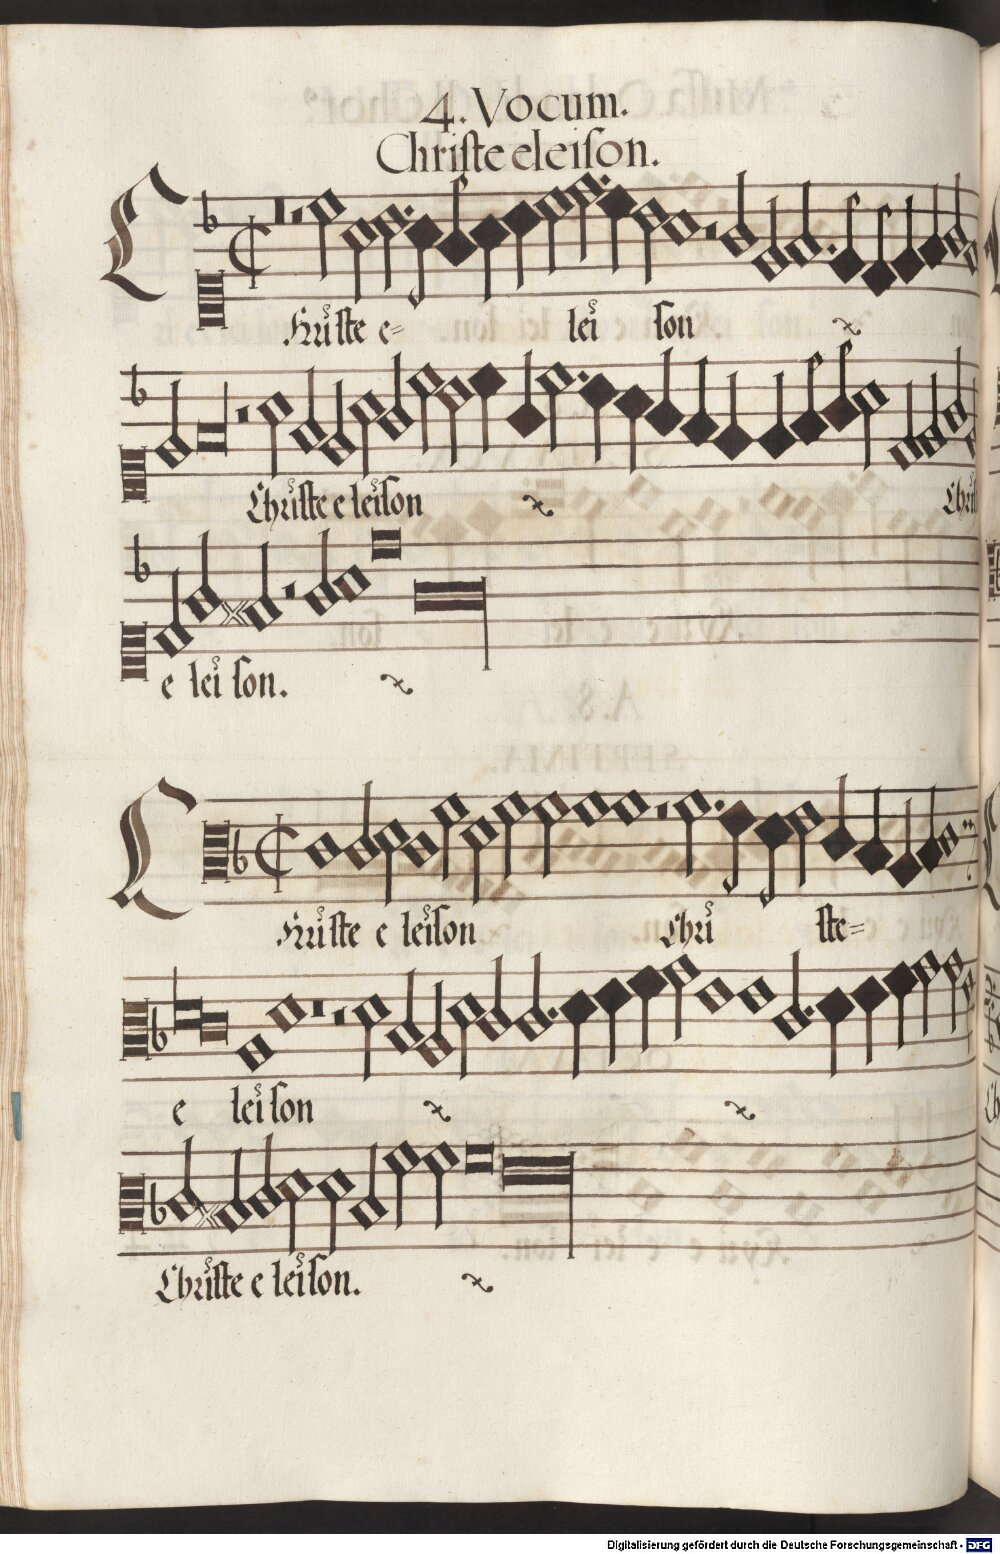 4. Vocum.
Christe eleison.
Christe e= lei son
Christe e leison Chris
e lei son.
Christe e leison Chri ste=
e lei son
Christe e leison.
Digitalisierung gefördert durch die Deutsche Forschungsgemeinschaft - DFG